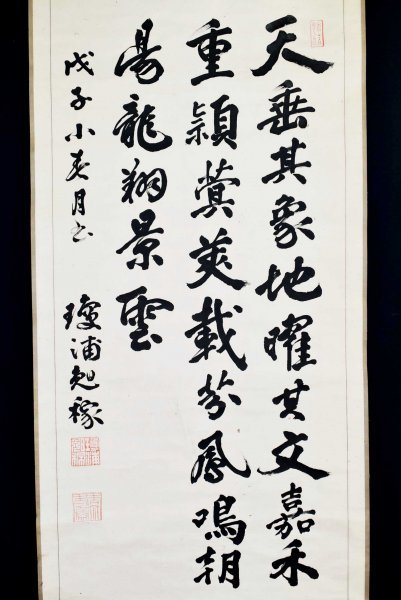 天垂其象地曜其文嘉禾
重穎蓂莢載芬鳳鳴朝
陽龍翔景雲
戊子小春月書
瓊浦勉稼